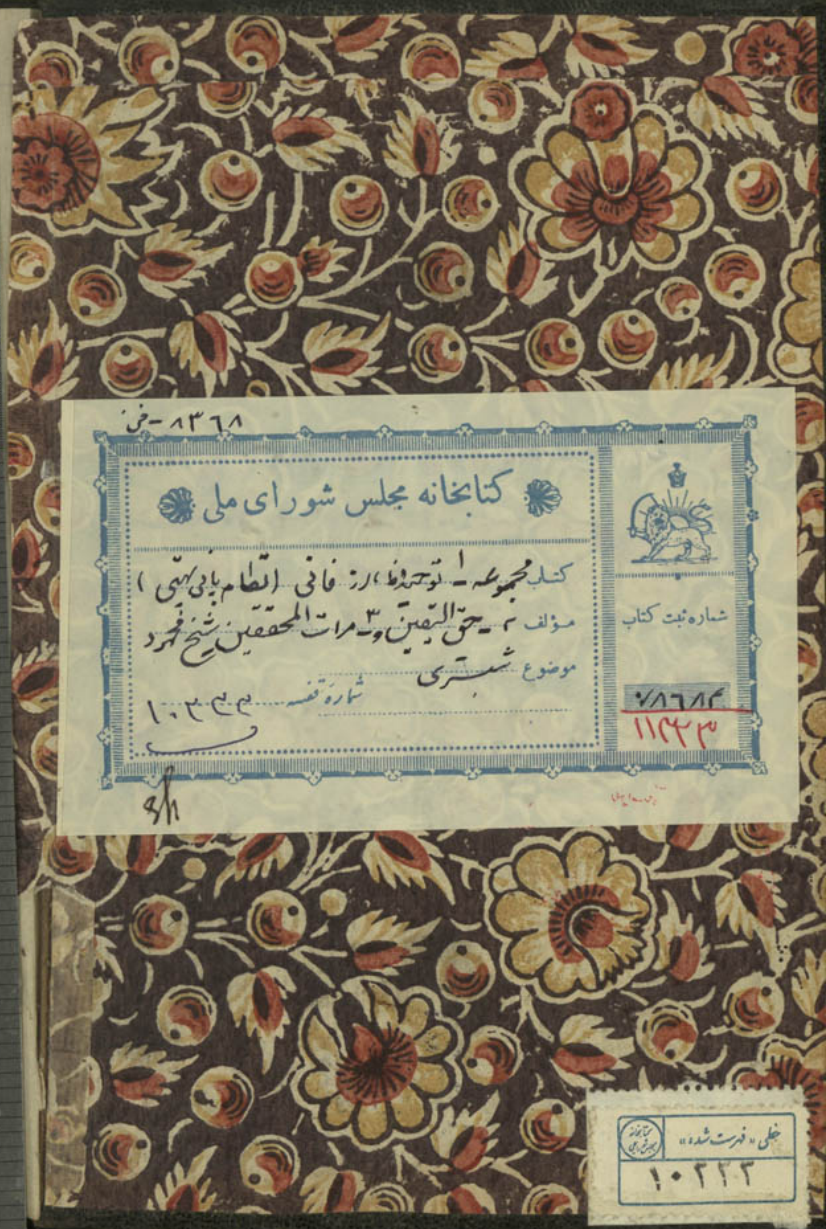 ۸۳۶۸ - خ
کتابخانه مجلس شورای ملی
کتاب مجموعه ۱-
مؤلف ۲- حق الیقین و ۳- مرات المحققین شیخ محمود
موضوع شبستری
شماره قفسه ۱۰۳۳۳
شماره ثبت کتاب
۷۸۶۸۴
۱۱۳۳۳
sh
خطی « فهرست شده »
۱۰۳۳۳